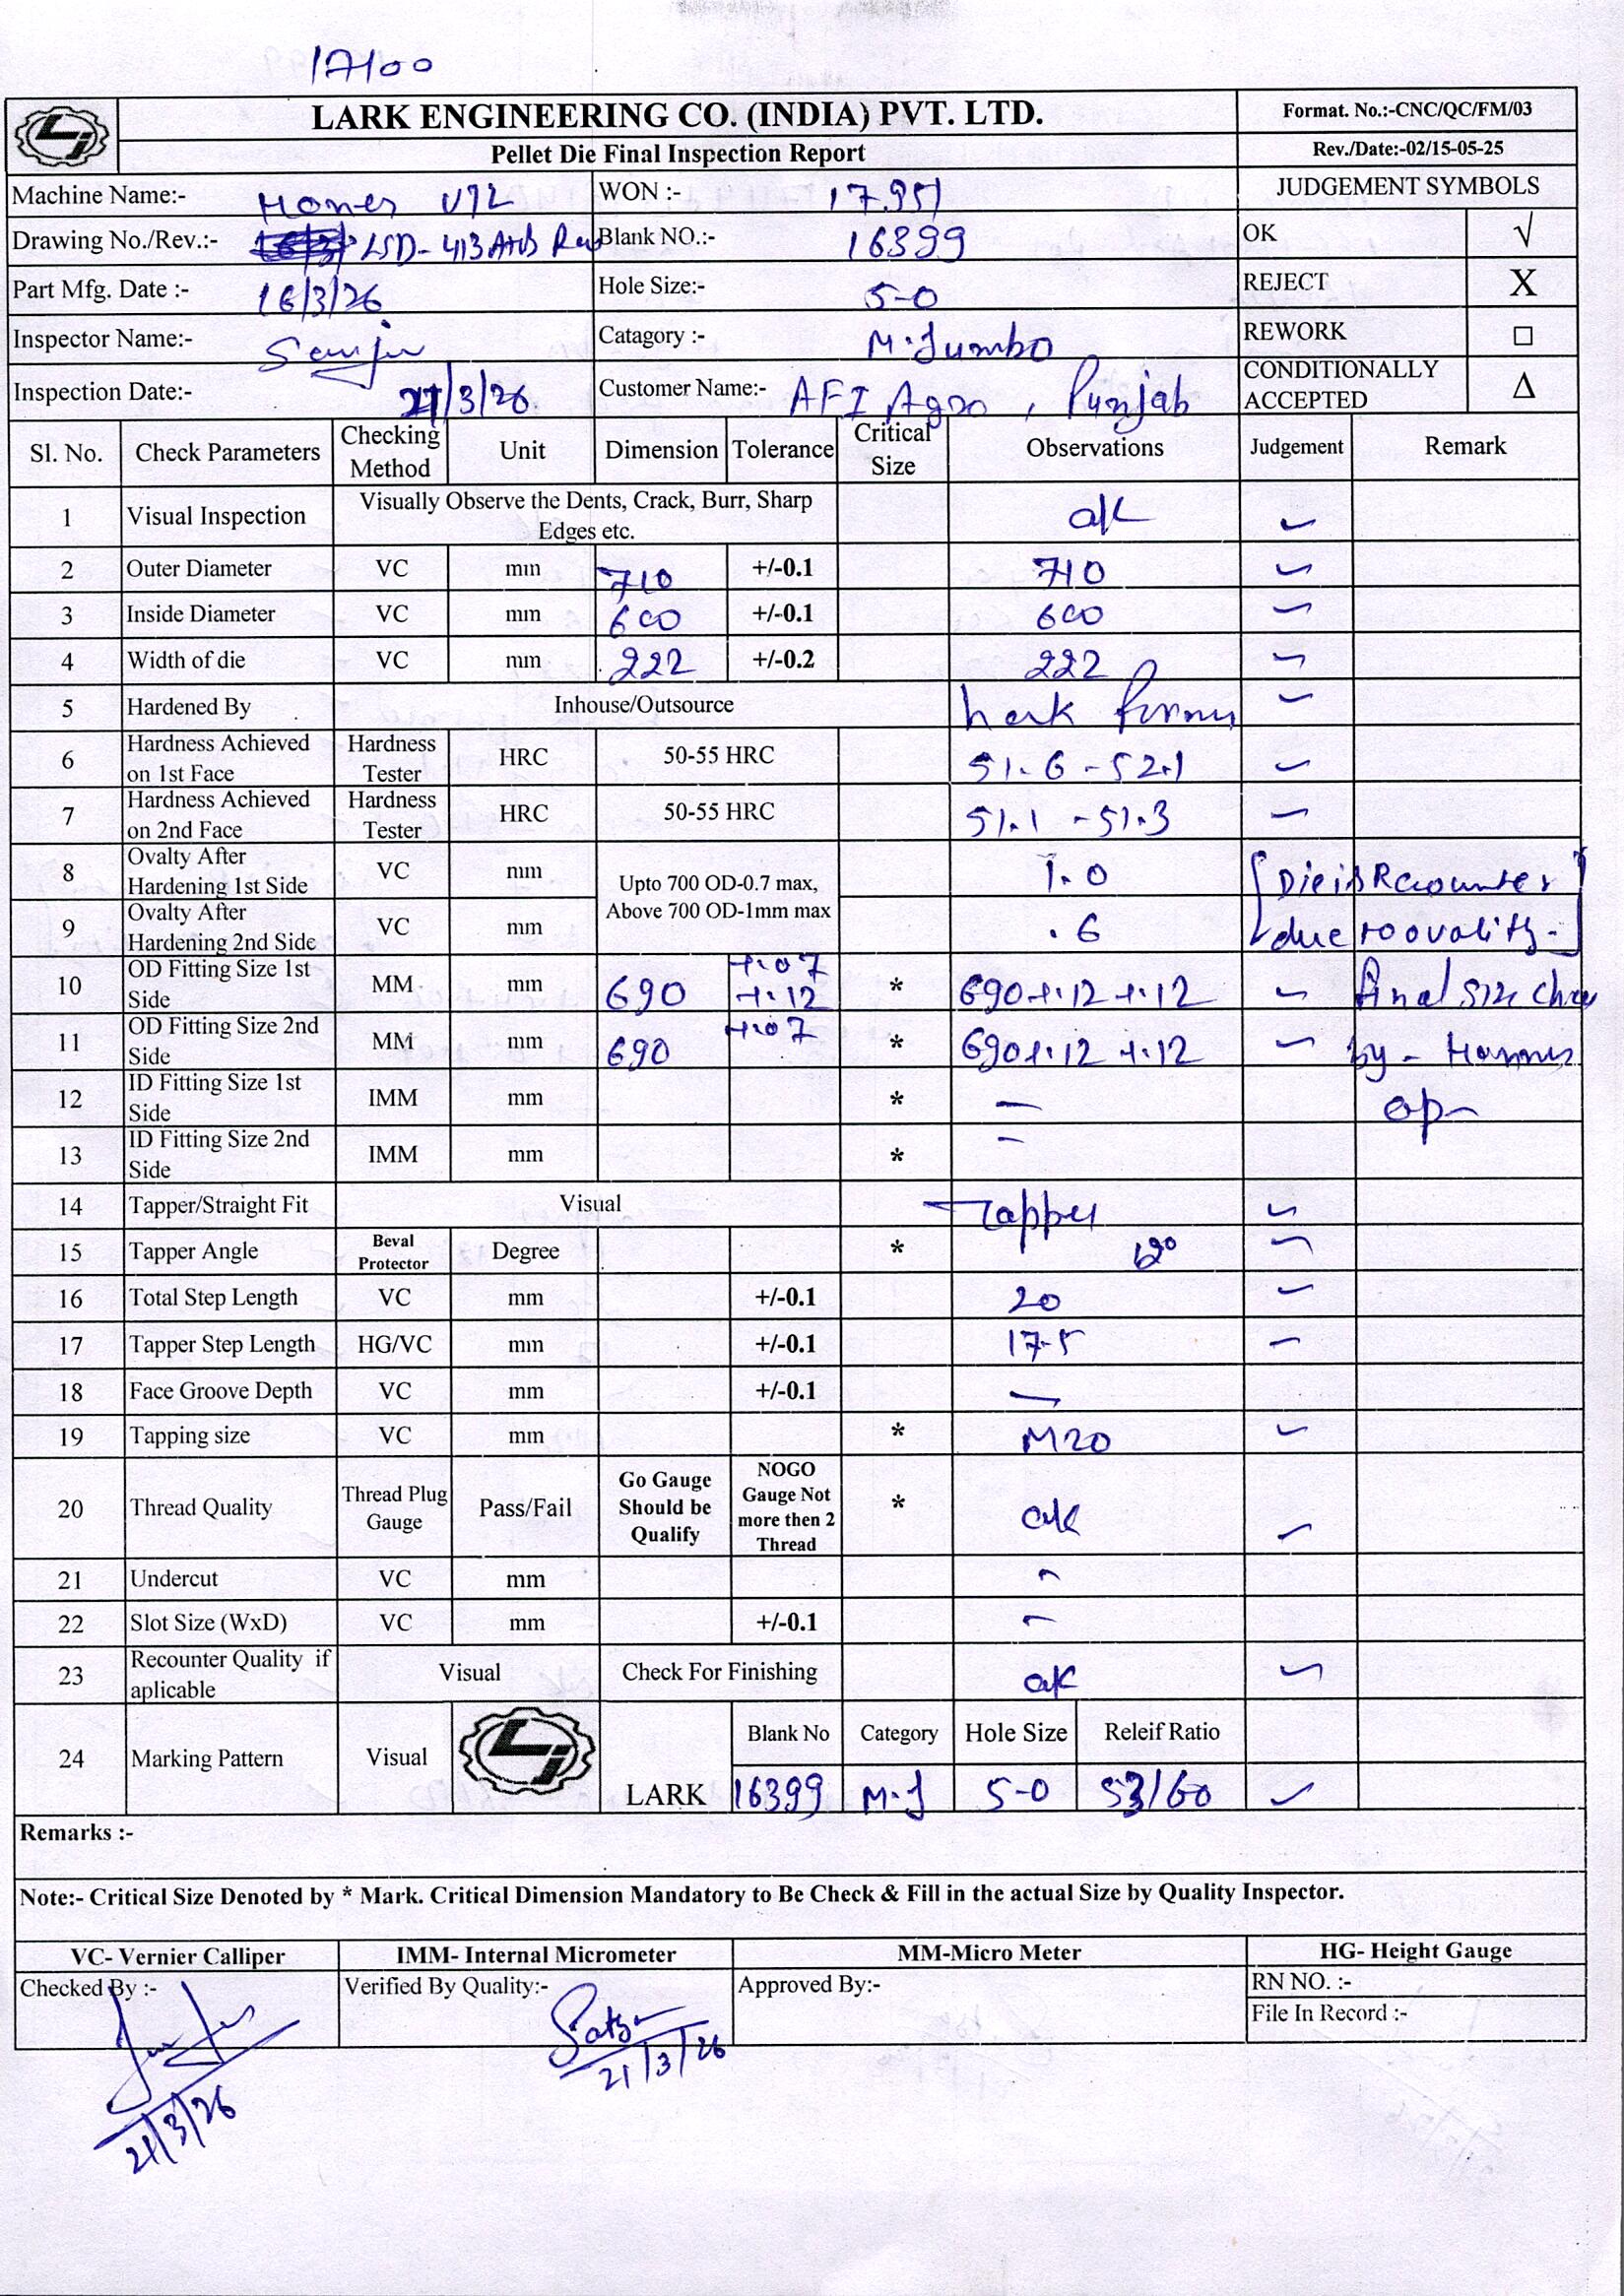 17100
LARK ENGINEERING CO. (INDIA) PVT. LTD.
Format. No.:-CNC/QC/FM/03
Pellet Die Final Inspection Report
Rev./Date:-02/15-05-25
Machine Name:- V72
WON :- 17951
JUDGEMENT SYMBOLS
Drawing No./Rev.:- LSD-413
Blank NO.:- 16399
OK √
Part Mfg. Date :- 16/3/26
Hole Size:- 5-0
REJECT X
Inspector Name:-
Catagory :- M.Jumbo
REWORK □
Inspection Date:- 21/3/26
Customer Name:- AFI Agro, Punjab
CONDITIONALLY ACCEPTED Δ
Sl. No. Check Parameters Checking Method Unit Dimension Tolerance Critical Size Observations Judgement Remark
1 Visual Inspection Visually Observe the Dents, Crack, Burr, Sharp Edges etc. ok ✓
2 Outer Diameter VC mm 710 +/-0.1 710 ✓
3 Inside Diameter VC mm 600 +/-0.1 600 ✓
4 Width of die VC mm 222 +/-0.2 222 ✓
5 Hardened By Inhouse/Outsource ✓
6 Hardness Achieved on 1st Face Hardness Tester HRC 50-55 HRC 51.6 - 52.1 ✓
7 Hardness Achieved on 2nd Face Hardness Tester HRC 50-55 HRC 51.1 - 51.3 ✓
8 Ovalty After Hardening 1st Side VC mm Upto 700 OD-0.7 max, Above 700 OD-1mm max 1.0 Die is Recounter
9 Ovalty After Hardening 2nd Side VC mm .6 due to ovality.
10 OD Fitting Size 1st Side MM mm 690 +.07 +.12 * 690+.12 +.12 ✓ final size
11 OD Fitting Size 2nd Side MM mm 690 +.07 * 690+.12 +.12 ✓ by -
12 ID Fitting Size 1st Side IMM mm * —
13 ID Fitting Size 2nd Side IMM mm * —
14 Tapper/Straight Fit Visual Tapper ✓
15 Tapper Angle Beval Protector Degree * ✓
16 Total Step Length VC mm +/-0.1 20 ✓
17 Tapper Step Length HG/VC mm +/-0.1 17.5 ✓
18 Face Groove Depth VC mm +/-0.1 —
19 Tapping size VC mm * M20 ✓
20 Thread Quality Thread Plug Gauge Pass/Fail Go Gauge Should be Qualify NOGO Gauge Not more then 2 Thread * ok ✓
21 Undercut VC mm —
22 Slot Size (WxD) VC mm +/-0.1 —
23 Recounter Quality if aplicable Visual Check For Finishing ok ✓
24 Marking Pattern Visual LARK Blank No Category Hole Size Releif Ratio
16399 M.J 5-0 53/60 ✓
Remarks :-
Note:- Critical Size Denoted by * Mark. Critical Dimension Mandatory to Be Check & Fill in the actual Size by Quality Inspector.
VC- Vernier Calliper IMM- Internal Micrometer MM-Micro Meter HG- Height Gauge
Checked By :- Verified By Quality:- Approved By:- RN NO. :-
File In Record :-
21/3/26
21/3/26